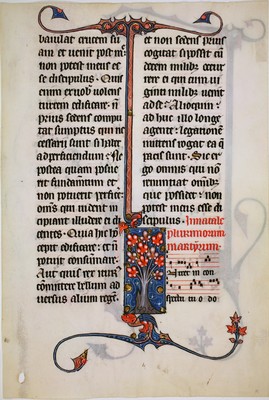 baiulat crucem su
am et venit post me
non potest meus es
se discipulus. Quis
enim ex vobis volens
turrem edificare: n
prius sedens compu
tat sumptus qui ne
cessarii sunt si habet
ad perficiendum: Ne
postea quam posue
rit fundamentum et
non potuerit perfice
omnes qui vident in
cipiant illudere ei di
centes. Quia hic ho
cepit edificare: et n
potuit consumare.
Aut quis rex iturus
comittere bellum ad
versus alium regem.
et non sedens prius
cogitat si possit cum
decem milibus occur
rere ei qui cum vi
ginti milibus venit
ad se: Alioquin:
ad huc illo longe
agente: legationem
mittens rogat ea que
pacis sunt. Sic er
go omnis qui non
renuntiat omnibus
que possidet: non
potest meus esse di
scipulus. In natale
plurimorum
martyrum.
Intret in con
spectu tuo do